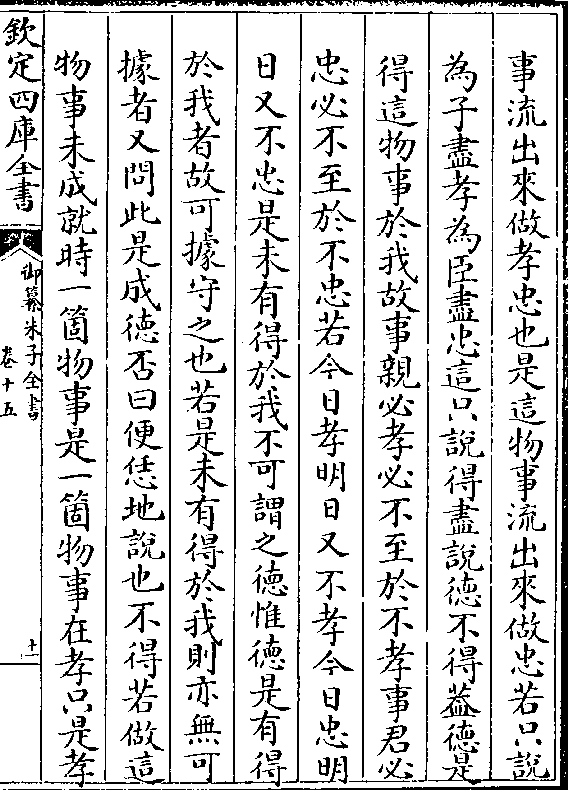 事流出來做孝忠也是這物事流出來做忠若只說
為子盡孝為臣盡忠這只說得盡說德不得葢德是
得這物事於我故事親必孝必不至於不孝事君必
忠必不至於不忠若今日孝明日又不孝今日忠明
日又不忠是未有得於我不可謂之德惟德是有得
於我者故可據守之也若是未有得於我則亦無可
據者又問此是成德否曰便恁地說也不得若做這
物事未成就時一箇物事是一箇物事在孝只是孝
欽定四庫全書
御纂朱子全書
卷十五
十一